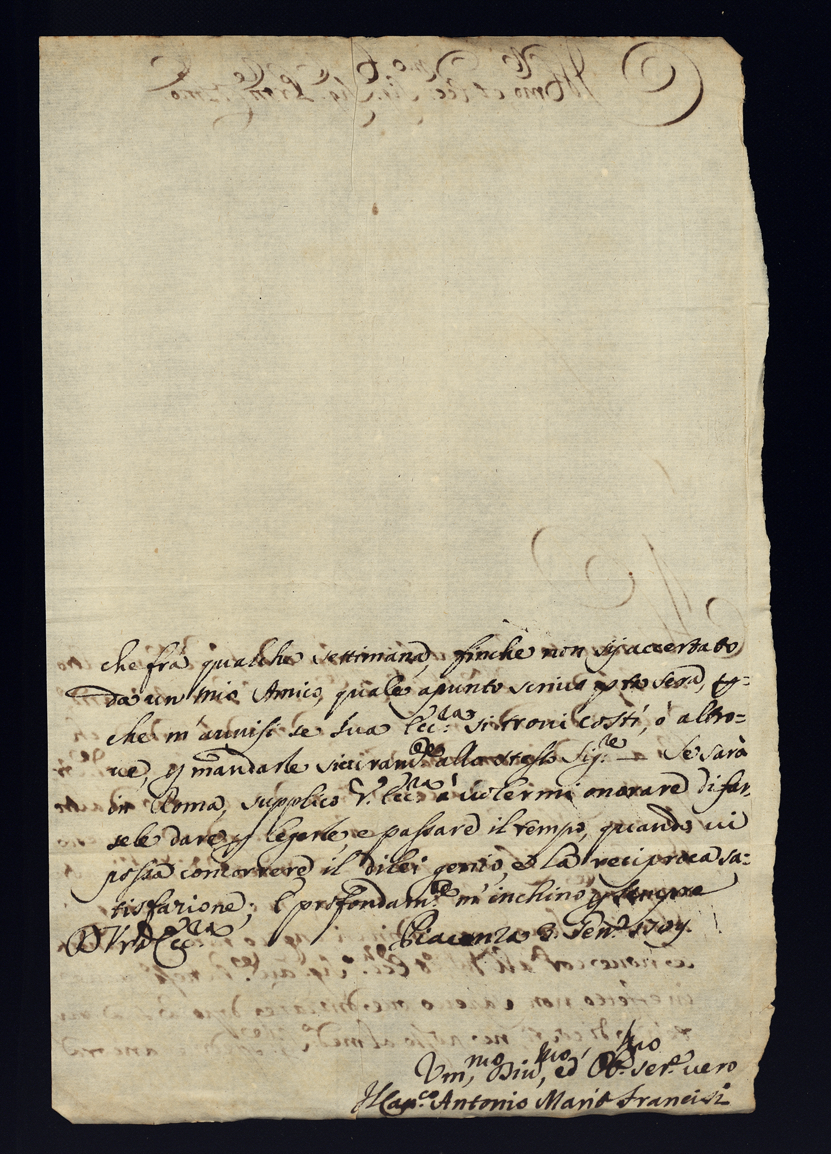 che frà qualche settimana, finche non sij accertato
da un mio Amico, quale apunto scriuo q.to sera,
che m'auuisi se sua Ecc.za si troui costì, ò altro=
ue, p mandarle allo stesso Sig.re Se sarà
in Roma, supplico V. Ecc.za à uolermi onorare di far=
sele dare p legerle, e passare il tempo, quando ui
possa concorrere il di lei genio, e la reciproca sa=
tisfazione; E profondam.te m'inchino p sempre
D V.ra Ecc.za Piacenza 3. Gen.o 1709.
Vm.mo Diu.mo, ed Ob. ser.e uero
Il Can.co Antonio Maria Francisi